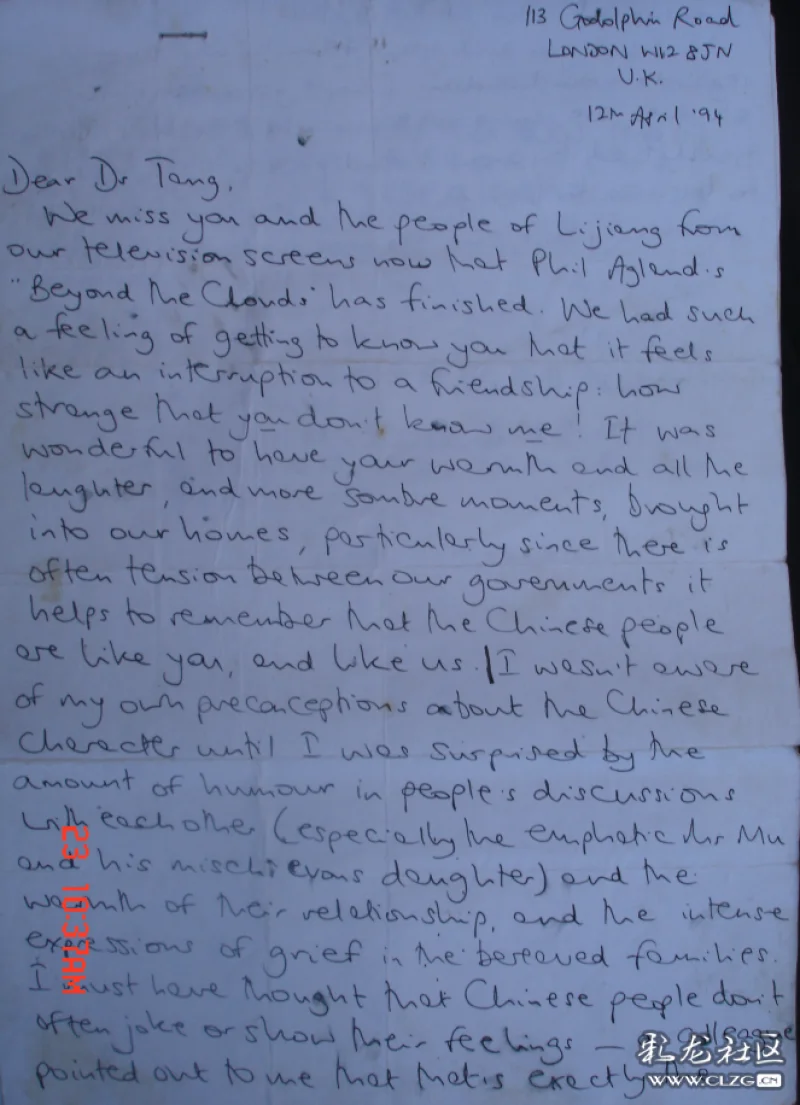 113 Godolphin Road
LONDON W12 8JN
U.K.
12th April '94
Dear Dr Tang,
We miss you and the people of Lijiang from
our television screens now that Phil Agland's
"Beyond the Clouds" has finished. We had such
a feeling of getting to know you that it feels
like an interruption to a friendship: how
strange that you don't know me! It was
wonderful to have your warmth and all the
laughter, and more sombre moments, brought
into our homes, particularly since there is
often tension between our governments it
helps to remember that the Chinese people
are like you, and like us. I wasn't aware
of my own preconceptions about the Chinese
character until I was surprised by the
amount of humour in people's discussions
with each other (especially the emphatic Mr Mu
and his mischievous daughter) and the
warmth of their relationship, and the intense
expressions of grief in the bereaved families.
I must have thought that Chinese people don't
often joke or show their feelings — a colleague
pointed out to me that that is exactly the
23 10:37AM
彩龙社区
www.CLZG.CN